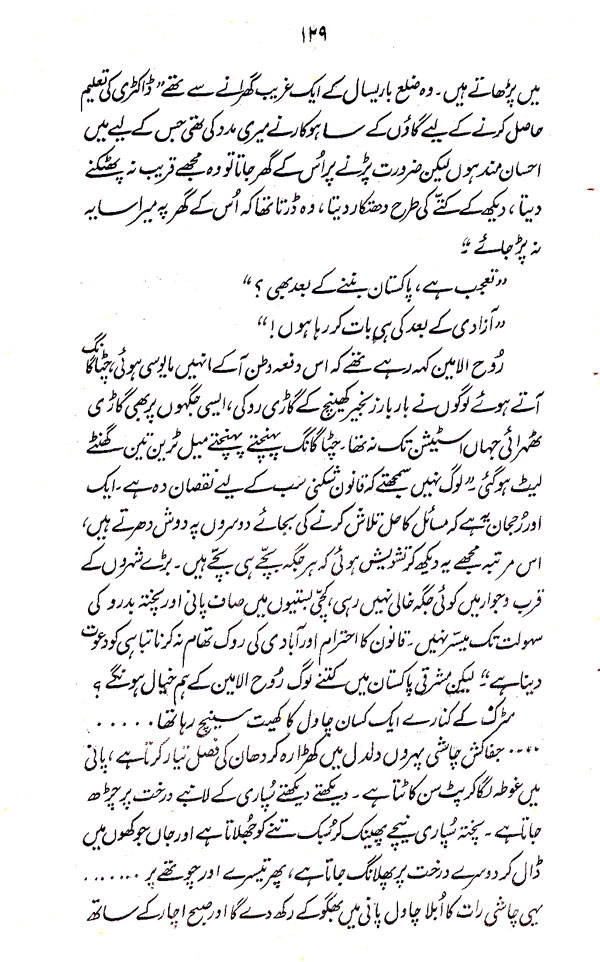 ۱۲۹
میں پڑھاتے ہیں۔ وہ ضلع باریسال کے ایک غریب گھرانے سے تھے ”ڈاکٹری کی تعلیم
حاصل کرنے کے لیے گاؤں کے ساہوکار نے میری مدد کی تھی جس کے لیے میں
احسان مند ہوں لیکن ضرورت پڑنے پر اُس کے گھر جاتا تو وہ مجھے قریب نہ پھٹکنے
دیتا، دیکھ کے کتّے کی طرح دھتکار دیتا، وہ ڈرتا تھا کہ اُس کے گھر پہ میرا سایہ
نہ پڑ جائے“۔
”تعجب ہے، پاکستان بننے کے بعد بھی؟“
”آزادی کے بعد کی ہی بات کر رہا ہوں!“
رُوح الامین کہہ رہے تھے کہ اس دفعہ وطن آ کے انہیں مایوسی ہوئی، چٹاگانگ
آتے ہوئے لوگوں نے بار بار زنجیر کھینچ کے گاڑی روکی، ایسی جگہوں پر بھی گاڑی
ٹھہرائی جہاں اسٹیشن تک نہ تھا۔ چٹاگانگ پہنچتے پہنچتے میل ٹرین تین گھنٹے
لیٹ ہو گئی۔ ”لوگ نہیں سمجھتے کہ قانون شکنی سب کے لیے نقصان دہ ہے۔ ایک
اور رُجحان یہ ہے کہ مسائل کا حل تلاش کرنے کی بجائے دوسروں پہ دوش دھرتے ہیں،
اس مرتبہ مجھے یہ دیکھ کر تشویش ہوئی کہ ہر جگہ بچّے ہی بچّے ہیں۔ بڑے شہروں کے
قرب و جوار میں کوئی جگہ خالی نہیں رہی، کچّی بستیوں میں صاف پانی اور پختہ بدرو کی
سہولت تک میسّر نہیں۔ قانون کا احترام اور آبادی کی روک تھام نہ کرنا تباہی کو دعوت
دینا ہے“۔ لیکن مشرقی پاکستان میں کتنے لوگ رُوح الامین کے ہم خیال ہونگے؟
سڑک کے کنارے ایک کسان چاول کا کھیت سینچ رہا تھا۔۔۔۔۔۔
۔۔۔۔ جفاکش چاشی پہروں دلدل میں کھڑا رہ کر دھان کی فصل تیار کرتا ہے، پانی
میں غوطہ لگا کر پٹ سن کاٹتا ہے۔ دیکھتے دیکھتے سُپاری کے لانبے درخت پر چڑھ
جاتا ہے۔ پختہ سُپاری نیچے پھینک کر سُبک تنے کو جُھلاتا ہے اور جاں جوکھوں میں
ڈال کر دوسرے درخت پر پھلانگ جاتا ہے، پھر تیسرے اور چوتھے پر۔۔۔۔۔۔۔
یہی چاشی رات کا اُبلا چاول پانی میں بھگو کے رکھ دے گا اور صبح اچار کے ساتھ